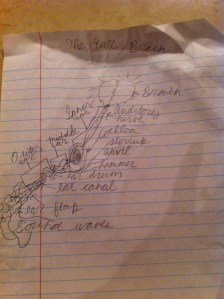 The
Brain
Inner
ear
auditory
nerve
cochlea
middle
ear
stirrup
Outer
ear
anvil
hammer
ear drum
ear canal
ear flap
Sound waves